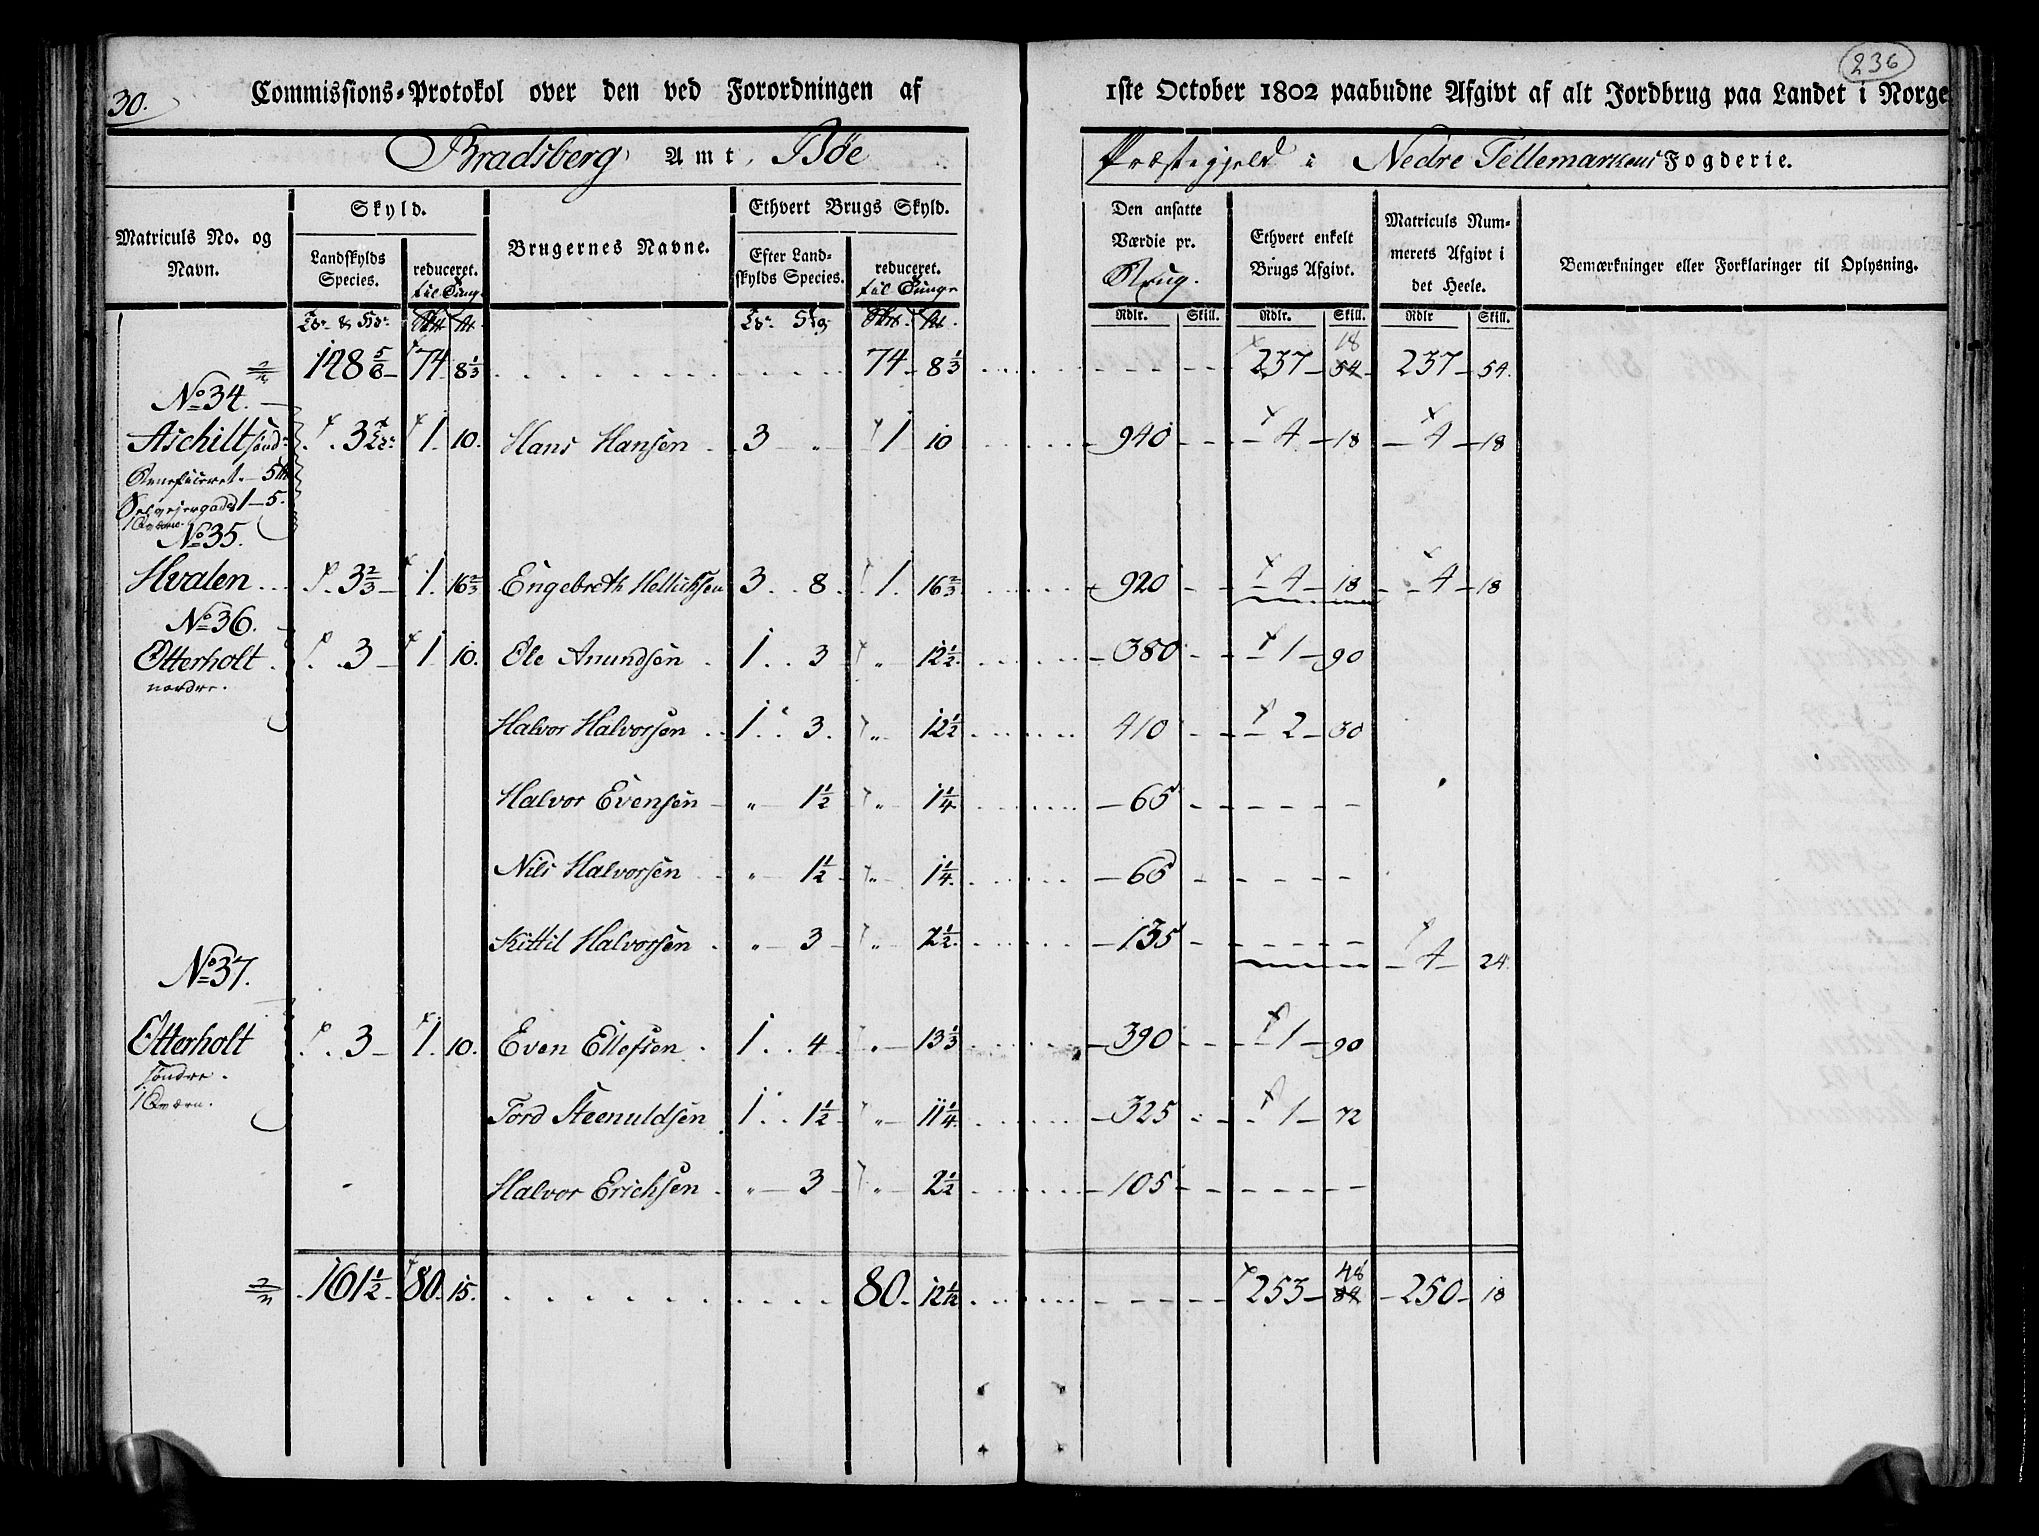 30.
236
Commissions-Protokol over den ved Forordningen af 1ste October 1802 paabudne Afgivt af alt Jordbrug paa Landet i Norge
Bradsberg Amt, Bøe Præstegjeld i Nedre Tellemarkens Fogderie.
Matriculs No. og Navn.
Skyld.
Landskylds Species.
reduceret. til Tunge
Brugernes Navne.
Ethvert Brugs Skyld.
Efter Landskylds Species.
reduceret. til Tunge
Den ansatte Værdie pr. Brug.
Ethvert enkelt Brugs Afgivt.
Matriculs Nummerets Afgivt i det Heele.
Bemærkninger eller Forklaringer til Oplysning.
Rdlr. Skill. Rdlr. Skill. Rdlr Skill.
148 5/6 74 8 1/3 74 8 1/3 237 18 54 237 54.
No 34.
Aschilt sønd: 3 1 10. Hans Hansen 3 " 1 10 940 4 18 4 18
Beneficeret 5
Selveiergods 1 5.
1 Qværn.
No 35.
Hvalen 3 2/3 1. 16 2/3 Engebreth Hellichsen 3 8 1. 16 2/3 920 4 18 4 18
No 36.
Otterholt 3 1. 10. Ole Anundsen 1 3 " 12 1/2 380 1 90
nordre.
Halvor Halvorsen 1 3. " 12 1/2 410 2 30
Halvor Evensen " 1 1/2 " 1 1/4 65
Nils Halvorsen " 1 1/2 " 1 1/4 65
Kittil Halvorsen " 3 " 2 1/2 135 4 24
No 37.
Otterholt 3 1. 10. Even Ellefsen 1 4 " 13 1/3 390 1 90
søndre.
1 Qværn.
Tord Steenuldsen 1 1 1/2 " 11 1/4 325 1 72
Halvor Erichsen " 3 " 2 1/2 105
161 1/2 80. 15. 80. 12 1/12 253 48 250 18